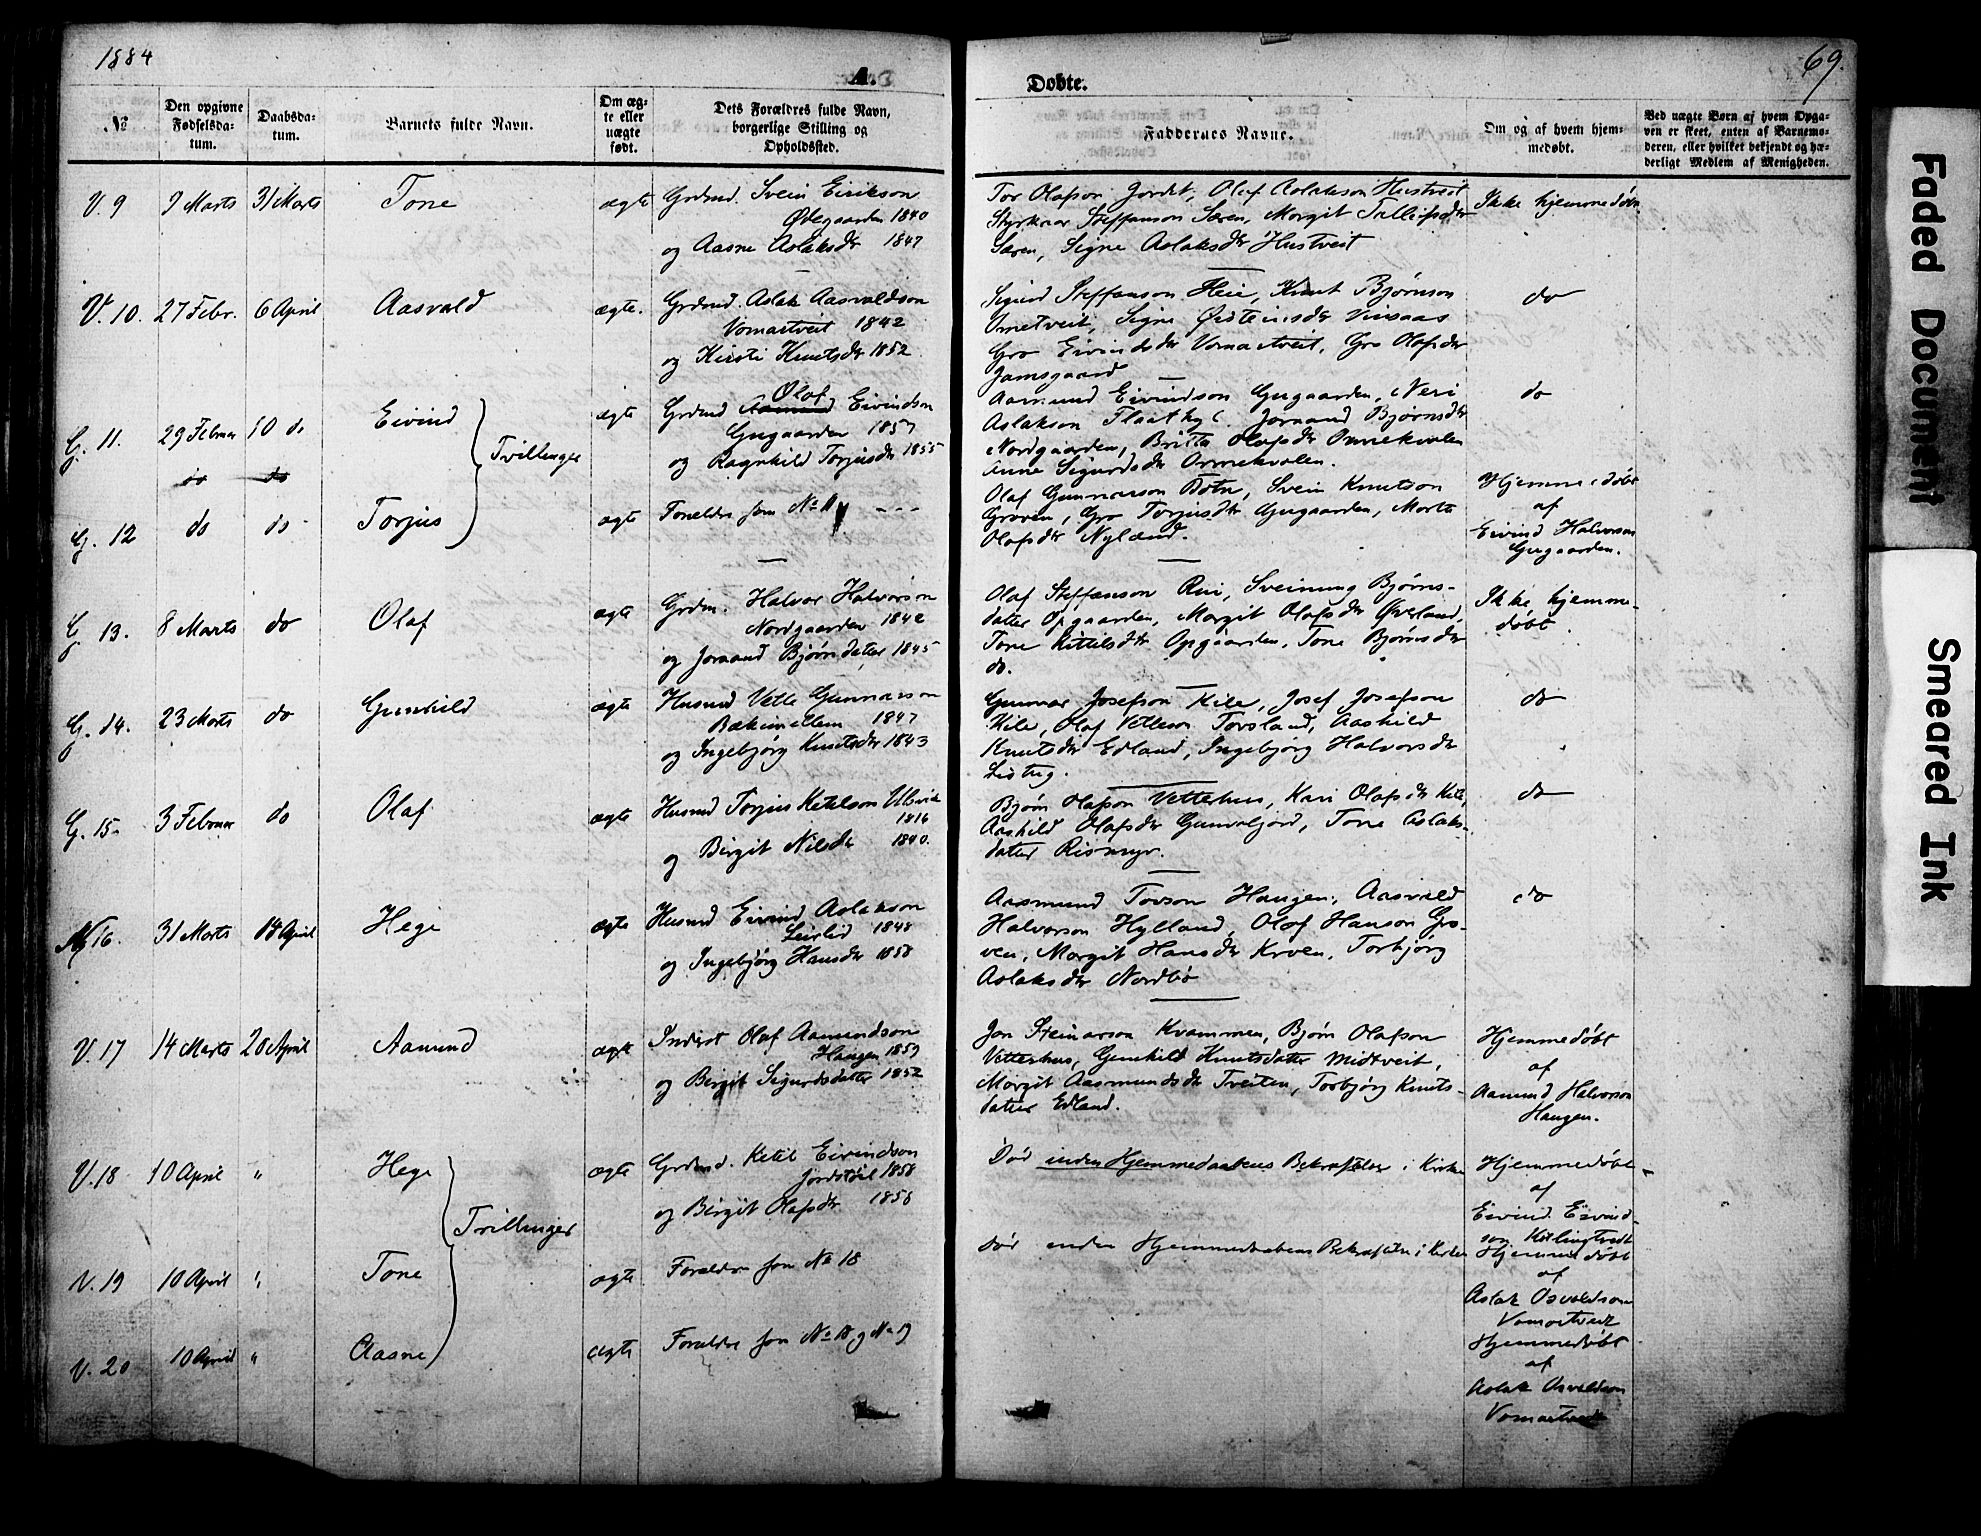 1884
A.
Døbte.
69.
№
Den opgivne Fødselsda-tum.
Daabsda-tum.
Barnets fulde Navn.
Om æg-te eller uægte født.
Dets Forældres fulde Navn, borgerlige Stilling og Opholdssted.
Faddernes Navne.
Om og af hvem hjem-medøbt.
Ved uægte Børn af hvem Opga-ven er skeet, enten af Barnemo-deren, eller hvilket bekjendt og hæ-derligt Medlem af Menigheden.
V. 9 9 Marts 31 Marts Tone ægte
Grdmd. Svein Eirikson
Øigaarden 1840
og Aasne Aslaksdtr 1847
Tor Olafson Jordet, Oluf Aslakson Hustveit
Styrkaar Steffanson Særen, Margit Tallefsdtr
Særen, Signe Aslaksdtr Hustveit
Ikke hjemmedøbt
V. 10. 27 Febr. 6 April Aasvald ægte.
Grdmd. Aslak Aasvaldson
Vomartveit 1842
og Kirsti Knutsdtr 1852
Sigurd Steffanson Heie, Knut Bjørnson
Ormetveit, Signe Øisteinsdtr Vinsaas
Gro Eivindsdtr Vomartveit, Gro Olafsdtr
Jamsgaard
do
G. 11. 29 Februar 10 do Eivind Tvillinger ægte
Grdmd Olaf Eivindson
Gugaarden 1857
og Ragnhild Torjusdtr 1855
do do
Aamund Eivindson Gugaarden, Neri
Aslakson Flaatbyt Joraand Bjørnsdtr
Nordgaarden, Britta Olafsdtr Ormekvalen
Anne Sigurdsdtr Ormekvalen.
do
G. 12 do do Torjus ægte
Foreldre som № 11 - - -
Olaf Gunnarson Botn, Svein Knutson
Groven, Gro Torjusdtr Gugaarden, Marte
Olafsdtr Nyland.
Hjemmedøbt
af
Eivind Halvorson
Gugaarden.
G. 13. 8 Marts do Olaf ægte
Grdm. Halvor Halvorson
Nordgaarden 1842
og Joraand Bjørnsdatter 1845
Olaf Steffanson Rui, Sveinung Bjørns-
datter Opgaarden, Margit Olafsdtr Øverland,
Tone Kittilsdtr Opgaarden, Tone Bjørnsdtr
do.
Ikke hjemme-
døbt
G. 14. 23 Marts do Gunhild ægte
Husmd Vetle Gunnarson
Bækimellem 1847
og Ingebjørg Knutsdtr 1843
Gunnar Josefson Kile, Josef Josefson
Kile, Olaf Vetleson Torsland, Aashild
Knutsdtr Edland, Ingebjørg Halvorsdtr
Listug.
do
G. 15. 3 Februar do Olaf ægte
Husmd Torjus Ketelson Ulsvik
1816
og Birgit Nilsdtr 1840.
Bjørn Olafson Vetterhus, Kari Olafsdtr Kile,
Aashild Olafsdtr Gunvaljord, Tone Aslaks-
datter Rismyr.
do
16. 31 Marts 14 April Hege ægte
Husmd Eivind Aslakson
Leirlid 1848
og Ingebjørg Hansdtr 1858
Aasmund Tovson Haugen, Aasvald
Halvorson Hylland, Olaf Hanson Gro-
ven, Margit Hansdtr Kroen, Torbjørg
Aslaksdtr Nordbø
do
V. 17 14 Marts 20 April Aamund ægte
Inderst Olaf Aamundson
Haugen 1859
og Birgit Sigurdsdatter 1852
Jon Steinarson Kvammen, Bjørn Olafson
Vetterhus, Gunhild Knutsdatter Midtveit,
Margit Aasmundsdtr Tveiten, Torbjørg Knuts-
datter Edland.
Hjemmedøbt
af
Aamund Halvorson
Haugen.
V. 18 10 April " Hege Tvillinger ægte
Grdmd. Ketil Eivindson
Jordstøil 1858
og Birgit Olafsdtr 1856
Død inden Hjemmedaabens Bekræftelse i Kirken
Hjemmedøbt
af
Eivind Eivind-
son Killingtveit
V. 19 10 April " Tone ægte
Foreldre som № 18
Død inden Hjemmedaabens Bekræftelse i Kirken
Hjemmedøbt
af
Aslak Osvaldson
Vomartveit
V. 20 10 April " Aasne ægte
Foreldre som № 18 og № 19
Hjemmedøbt
af
Aslak Osvaldson
Vomartveit
Faded Document
Smeared Ink